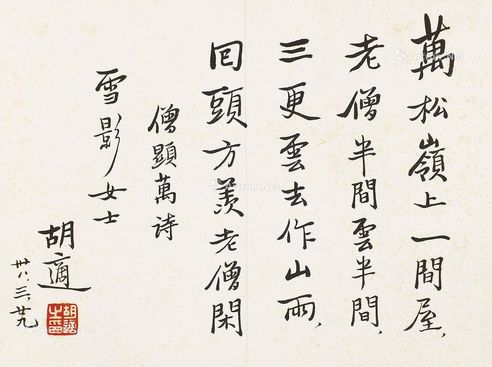 萬松嶺上一間屋,
老僧半間雲半間,
三更雲去作山雨,
回頭方羨老僧閑
僧顯萬詩
雪影女士
胡適
卅八,三,廿九
胡適之印